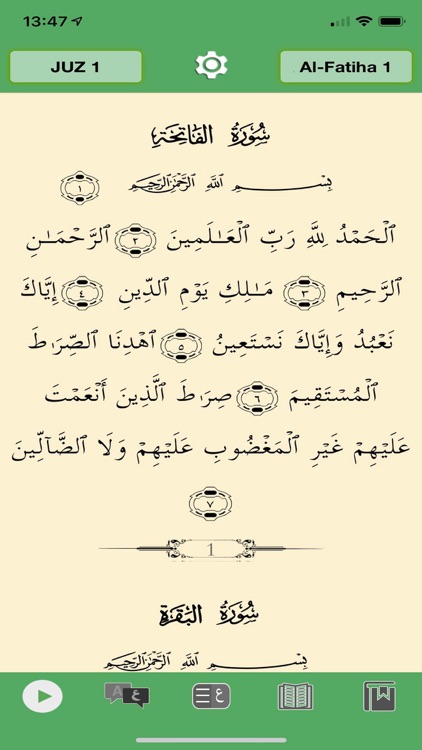 13:47
JUZ 1
Al-Fatiha 1
سُورَةُ الفَاتِحَةِ
بِسْمِ ٱللَّهِ ٱلرَّحْمَٰنِ ٱلرَّحِيمِ ١
ٱلْحَمْدُ لِلَّهِ رَبِّ ٱلْعَـٰلَمِينَ ٢ ٱلرَّحْمَـٰنِ
ٱلرَّحِيمِ ٣ مَـٰلِكِ يَوْمِ ٱلدِّينِ ٤ إِيَّاكَ
نَعْبُدُ وَإِيَّاكَ نَسْتَعِينُ ٥ ٱهْدِنَا ٱلصِّرَٰطَ
ٱلْمُسْتَقِيمَ ٦ صِرَٰطَ ٱلَّذِينَ أَنْعَمْتَ
عَلَيْهِمْ غَيْرِ ٱلْمَغْضُوبِ عَلَيْهِمْ وَلَا ٱلضَّآلِّينَ
٧
1
سُورَةُ البَقَرَةِ
بِسْمِ ٱللَّهِ ٱلرَّحْمَٰنِ ٱلرَّحِيمِ
A ع ع